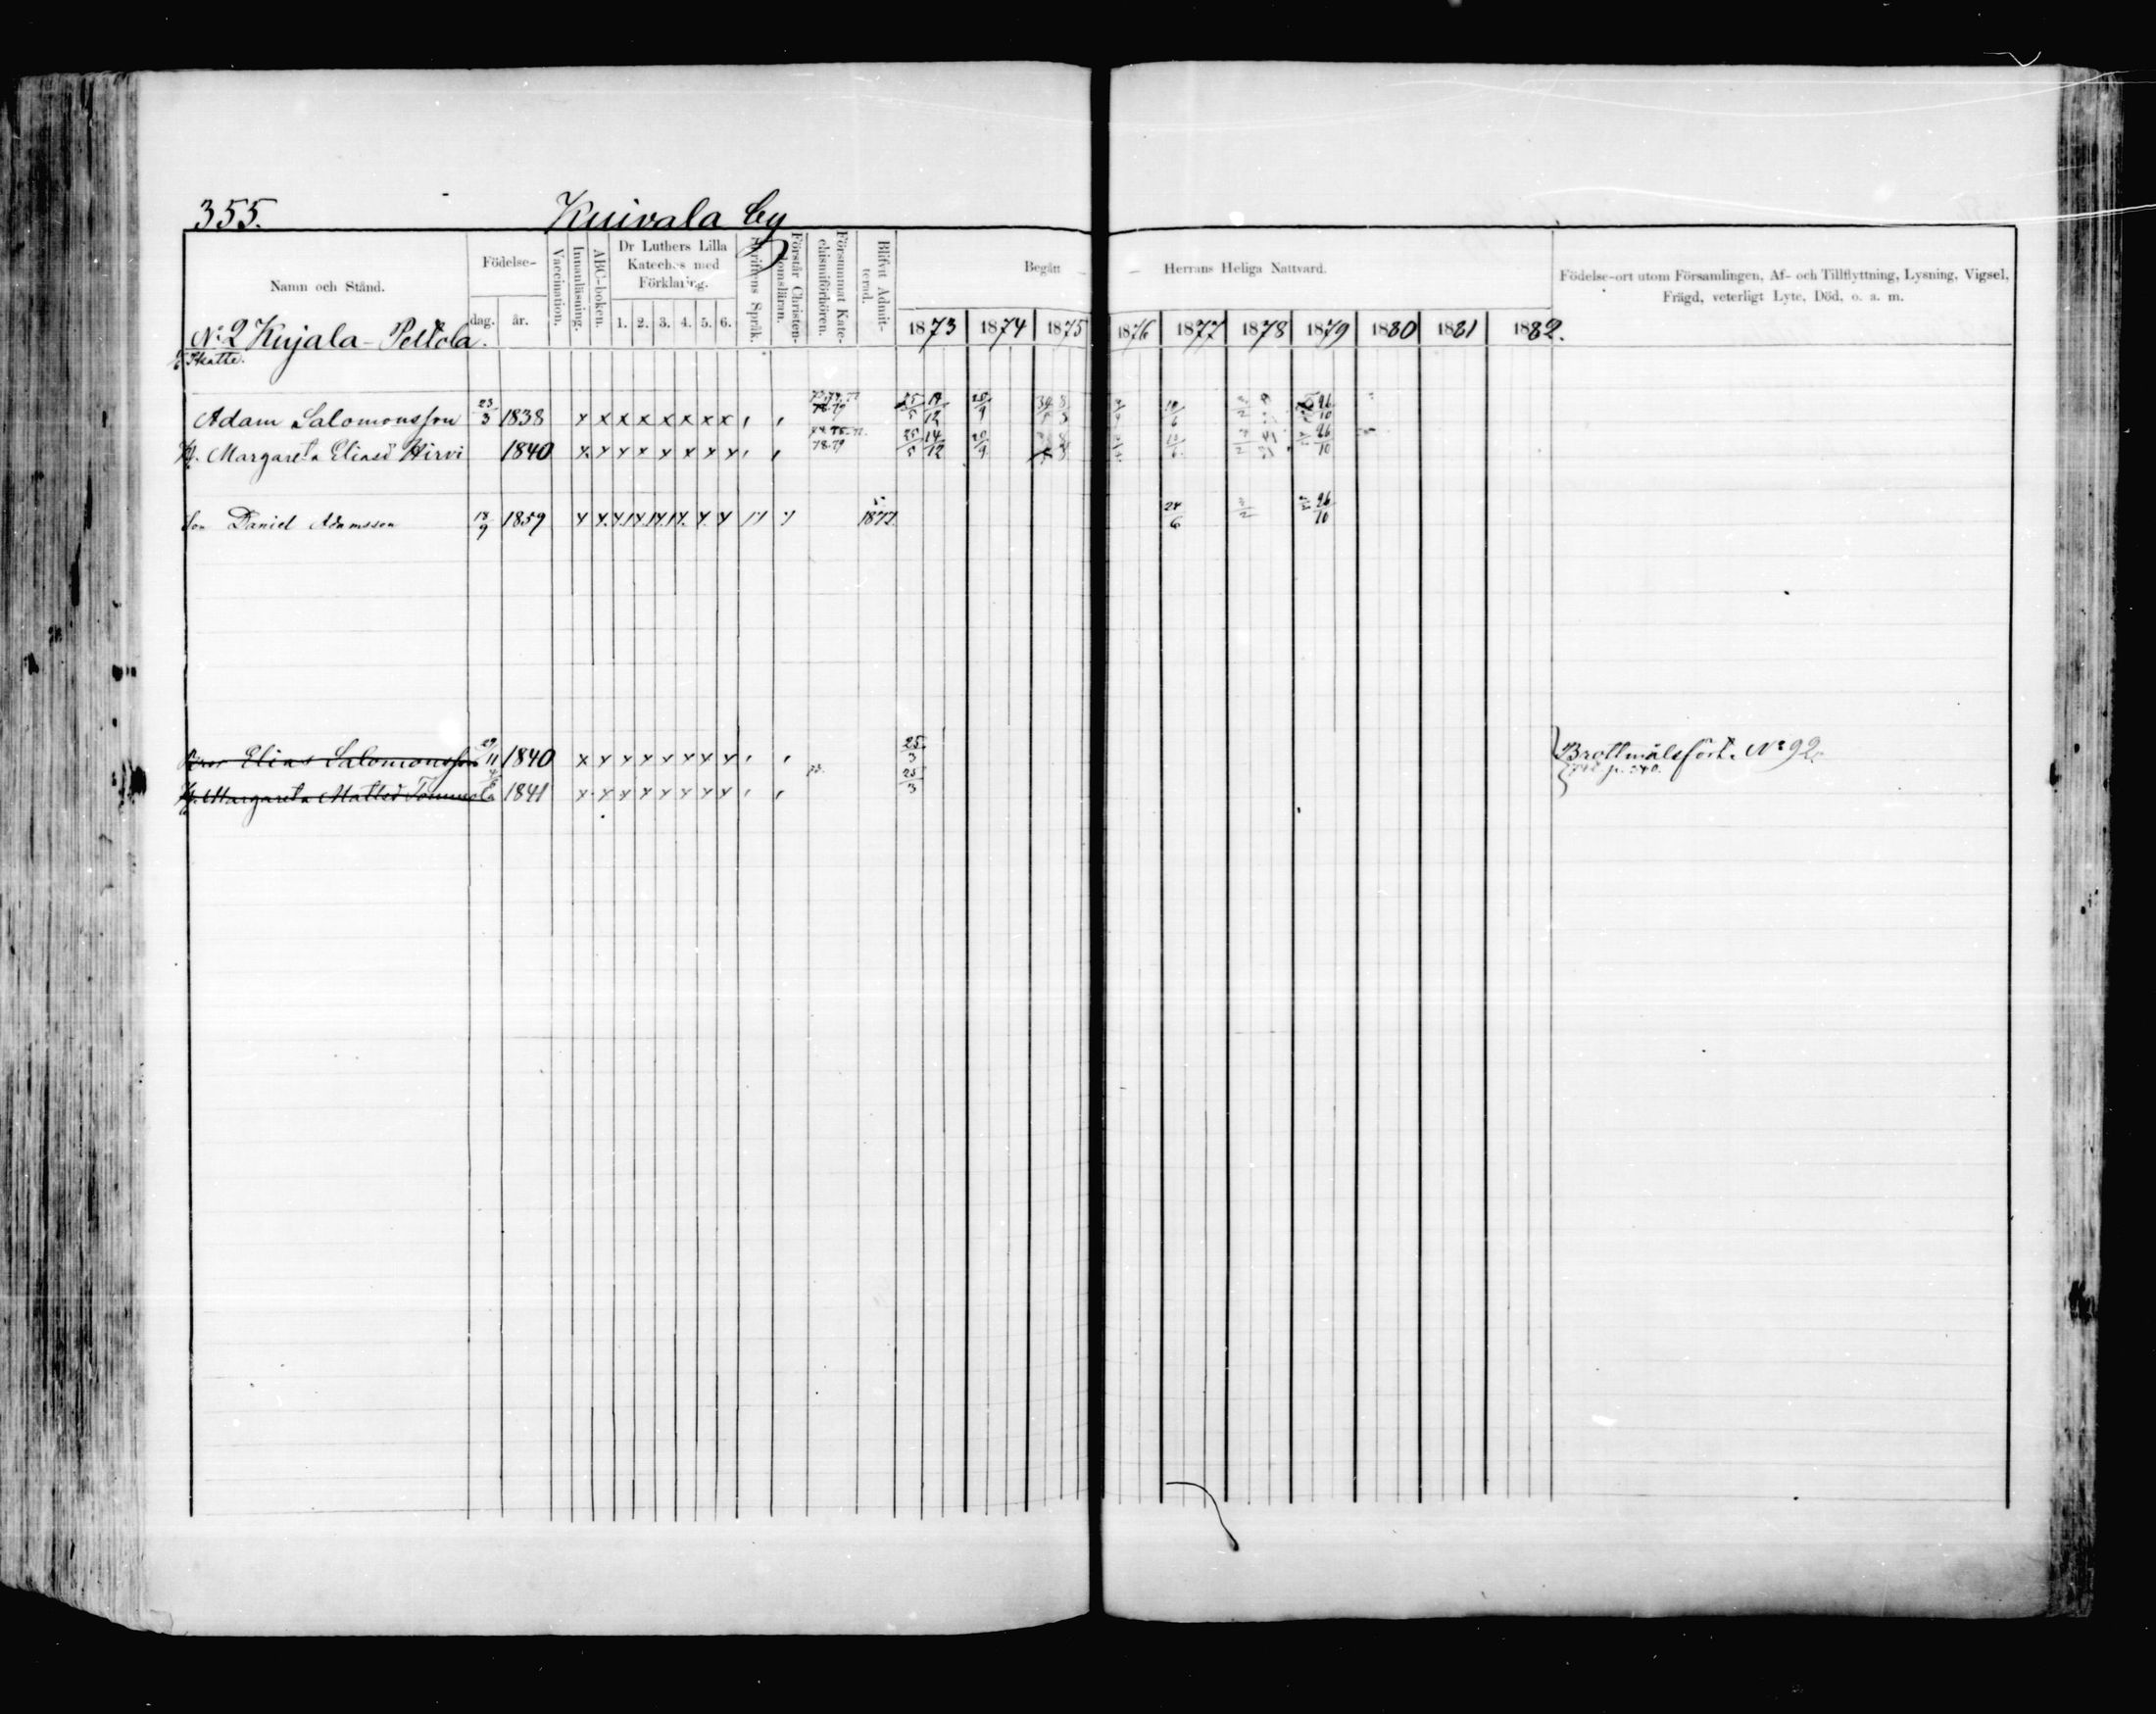 355. Kuivala by
Namn och Stånd.
Födelse-
dag. år.
Vaccination.
Innanläsning.
ABC-boken.
Dr Luthers Lilla
Kateches med
Förklaring.
1. 2. 3. 4. 5. 6.
Skriftens Språk.
Förstår Christen-
domsläran.
Försummat Kate-
chismiförhören.
Blifvit Admit-
terad.
Begått Herrans Heliga Nattvard.
1873 1874 1875 1876 1877 1878 1879 1880 1881 1882.
Födelse-ort utom Församlingen, Af- och Tillflyttning, Lysning, Vigsel,
Frägd, veterligt Lyte, Död, o. a. m.
No 2 Kujala-Peltola.
Skatte.
Adam Salomonsson 23/3 1838 x x x x x x x x 78.79 25/5 14/12 20/9 10/6 26/10
H. Margareta Eliasd Hirvi 1840 x x x x x x x x 78.79 25/5 14/12 20/9 10/6 26/10
Son Daniel Adamsson 18/9 1859 1877 24/6 26/10
Elias Salomonsson 29/11 1840 x x x x x x x x 25/3 Brottmålsfört. No 92.
H. Margareta Mattsd Tommola 1841 x x x x x x x x 73. 25/3